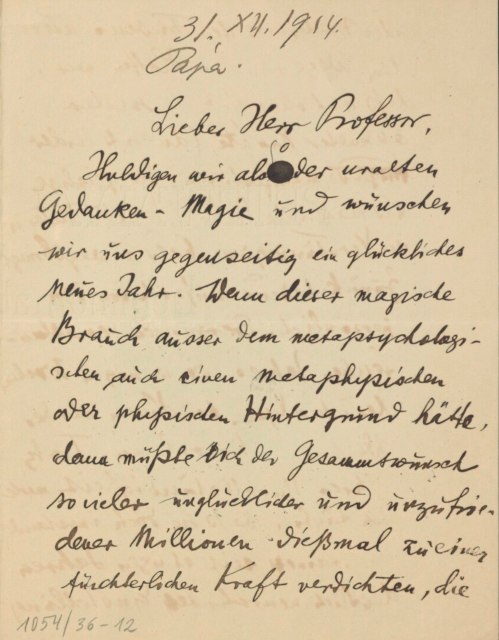 31. XII. 1914.
Pápa.
Lieber Herr Professor,
Huldigen wir also der uralten
Gedanken-Magie und wünschen
wir uns gegenseitig ein glückliches
neues Jahr. Wenn dieser magische
Brauch ausser dem metapsychologi-
schen auch einen metaphysischen
oder physischen Hintergrund hätte,
dann müßte sich der Gesammtwunsch
sovieler unglücklicher und unzufrie-
dener Millionen dießmal zu einer
fürchterlichen Kraft verdichten, die
1054/36-12